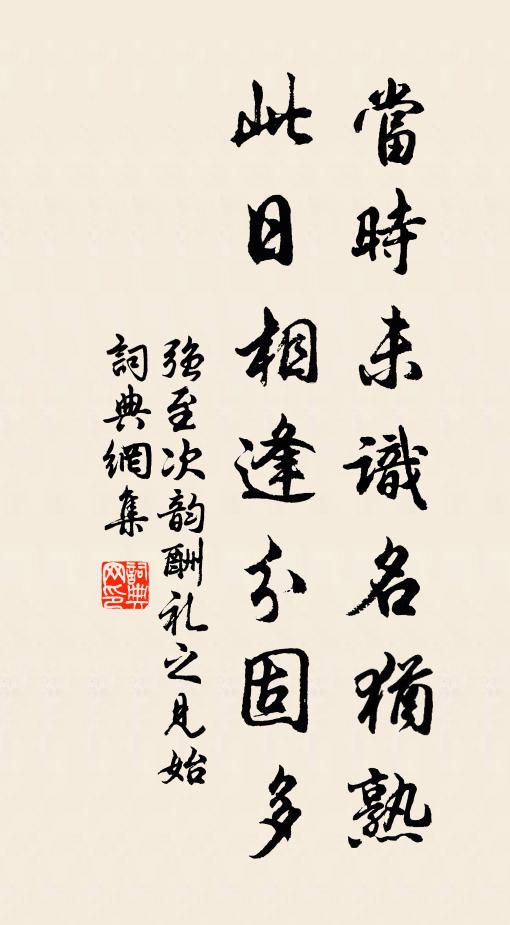 當時未識名猶熟
此日相逢分固多
強至次韵酬礼之見始
詞典網集
詞典
网印